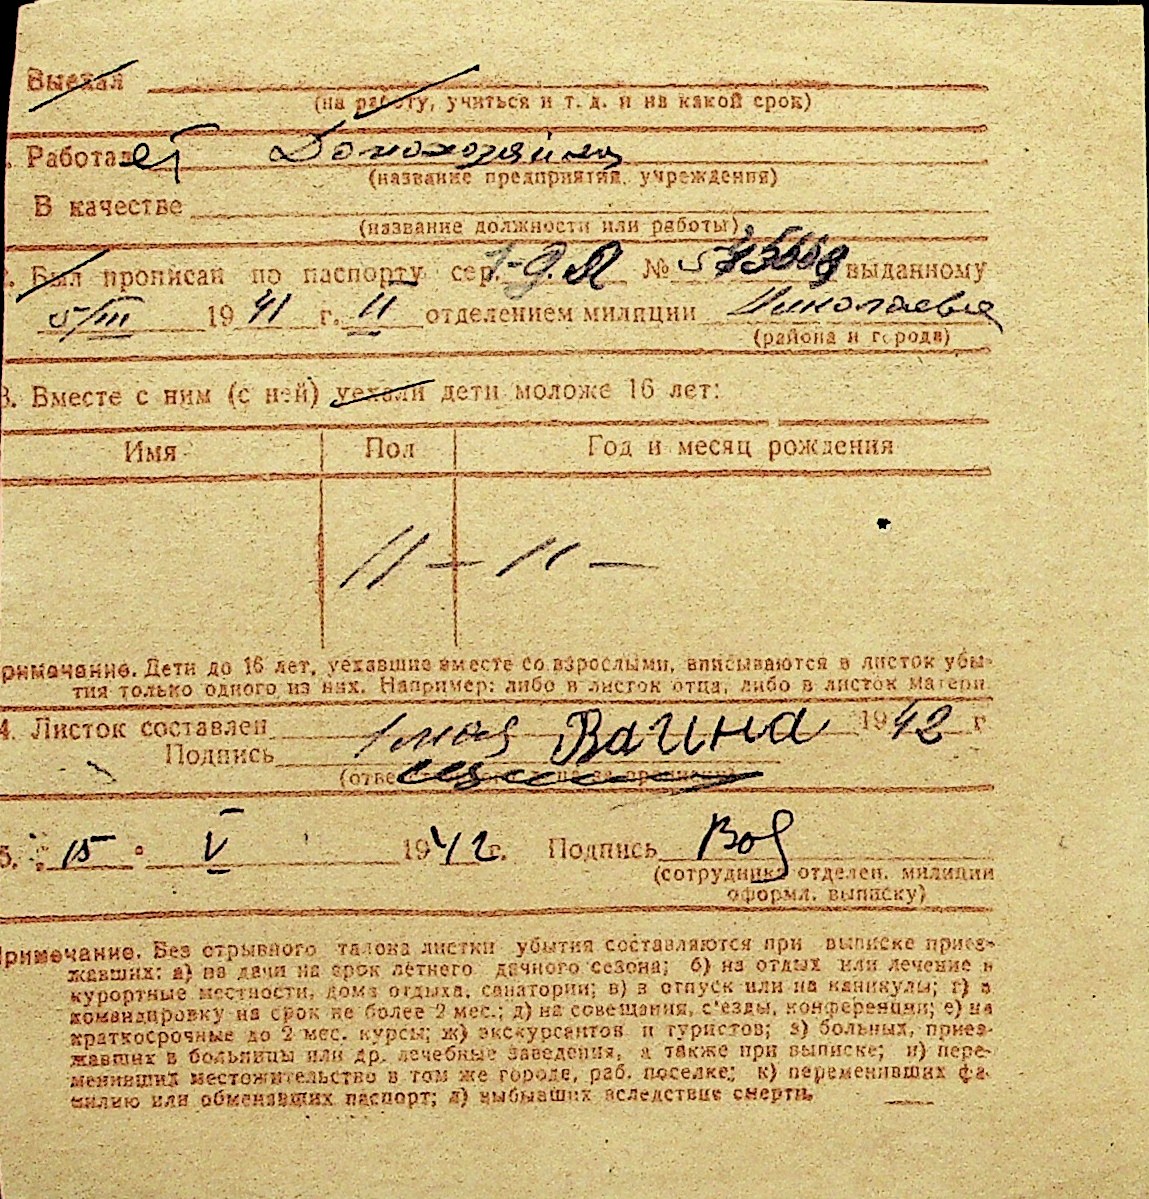 Выехал
(на работу, учиться и т. д. и на какой срок)
. Работает Домохозяйка
(название предприятия, учреждения)
В качестве
(название должности или работы)
. Был прописан по паспорту сер. № выданному
5/III 1941 г. II отделением милиции Николаевна
(района и города)
3. Вместе с ним (с ней) уехали дети моложе 16 лет:
Имя Пол Год и месяц рождения
// — // —
римечание. Дети до 16 лет, уехавшие вместе со взрослыми, вписываются в листок убы-
тия только одного из них. Например: либо в листок отца, либо в листок матери
4. Листок составлен 1 мая 1942 г
Подпись Вагина
5. 15 " V 1942 г. Подпись
(сотрудника отделен. милиции
оформл. выписку)
Примечание. Без отрывного талона листки убытия составляются при выписке приез-
жавших: а) на дачи на срок летнего дачного сезона; б) на отдых или лечение в
курортные местности, дома отдыха, санатории; в) в отпуск или на каникулы; г) в
командировку на срок не более 2 мес.; д) на совещания, с'езды, конференции; е) на
краткосрочные до 2 мес. курсы; ж) экскурсантов и туристов; з) больных, приез-
жавших в больницы или др. лечебные заведения, а также при выписке; и) пере-
менивших местожительство в том же городе, раб. поселке; к) переменивших фа-
милию или обменявших паспорт; л) выбывших вследствие смерти.